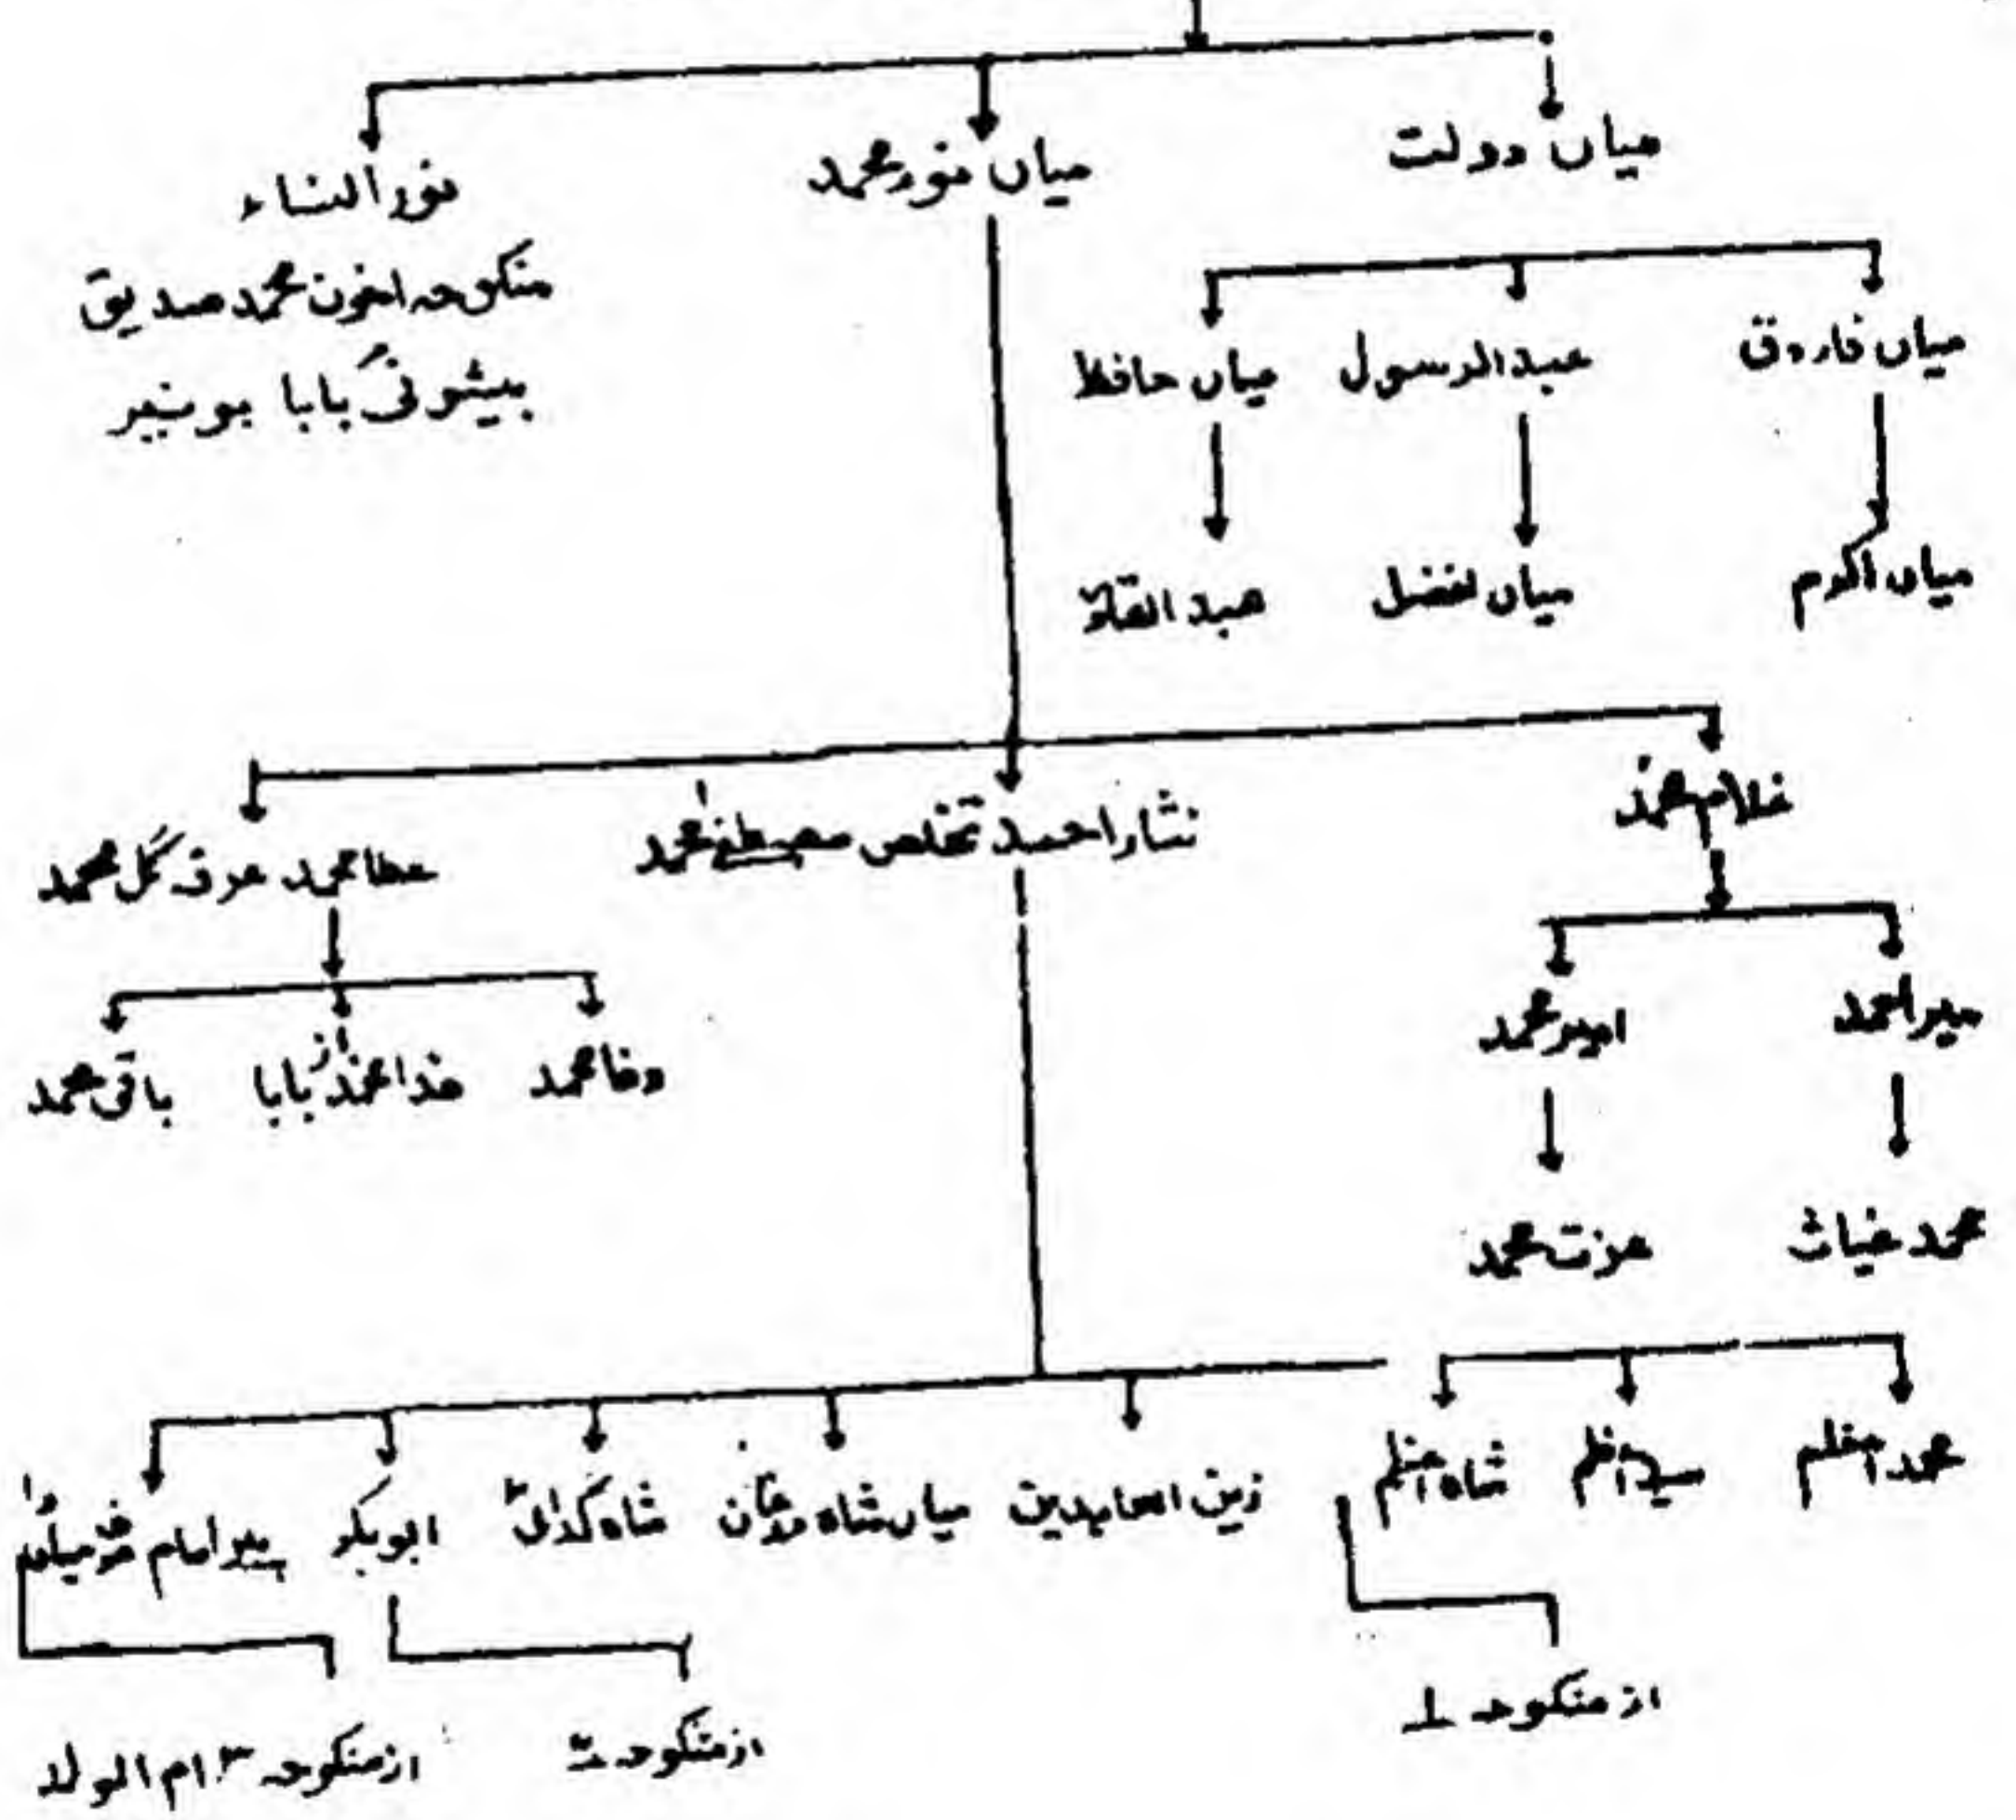 میاں دولت
میاں نور محمد
نور النساء
منکوحہ اخون محمد صدیق
بیشونی بابا بونیر
میاں فاروق
عبد الرسول
میاں حافظ
میاں اکرم
میاں افضل
عبد القادر
غلام محمد
نثار احمد تخلص مصطفےٰ محمد
عطا محمد عرف گل محمد
میر احمد
امیر محمد
وفا محمد
فدا محمد بابا
باقی محمد
محمد غیاث
عزت محمد
محمد اعظم
شاہ اعظم
زین العابدین
میاں شاہ
شاہ گدائی
ابوبکر
پیر امام
از منکوحہ ۱
از منکوحہ ۲
از منکوحہ ۳ ام الولد